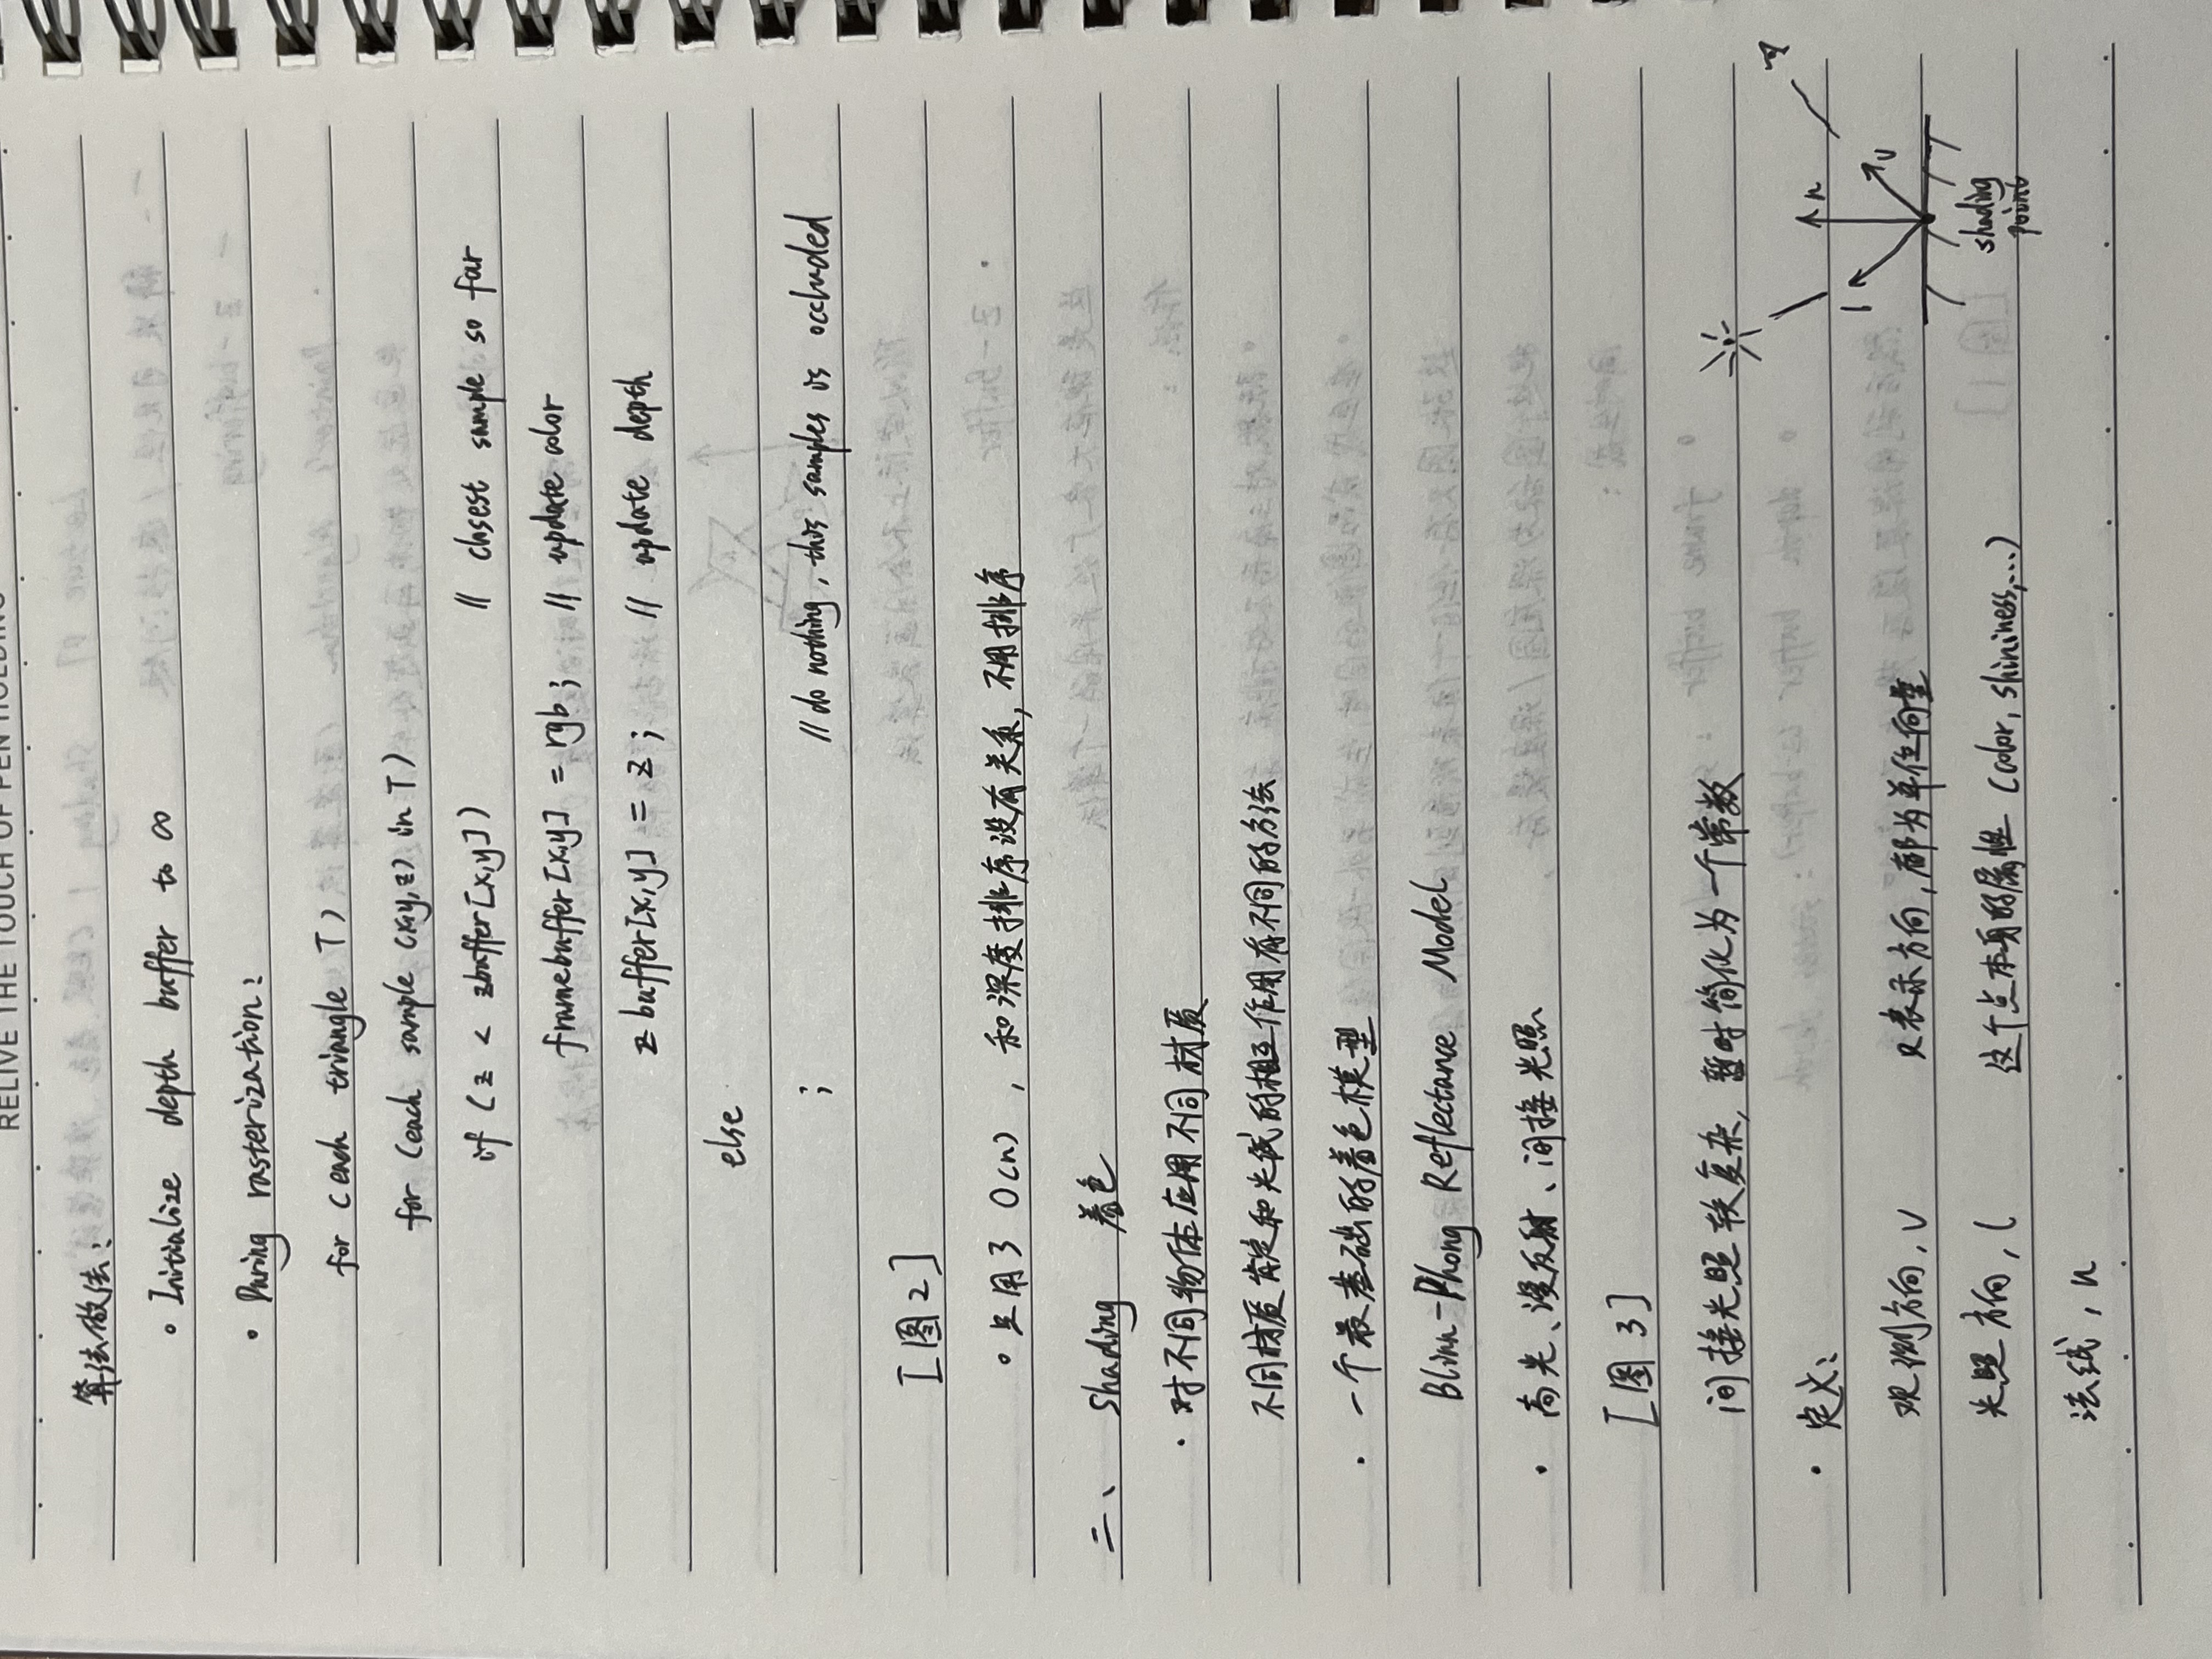 RELIVE THE TOUCH OF PEN HOLDING
算法做法：
• Initialize depth buffer to ∞
• During rasterization:
for (each triangle T)
for (each sample (x,y,z) in T)
if (z < zbuffer[x,y]) // closest sample so far
framebuffer[x,y] = rgb; // update color
zbuffer[x,y] = z; // update depth
else
; // do nothing, this samples is occluded
[图2]
• 只用了O(n)，和深度排序没有关系，不用排序
二、Shading 着色
• 对不同物体应用不同材质
不同材质肯定和光线的相互作用有不同的方法
• 一个最基础的着色模型
Blinn-Phong Reflectance Model
• 高光、漫反射、间接光照
[图3]
间接光照较复杂，暂时简化为一个常数
• 定义：
观测方向，v 只表示方向，都为单位向量
光照方向，l 这个点本身的属性 (color, shininess,...)
法线，n
l n v
shading
point